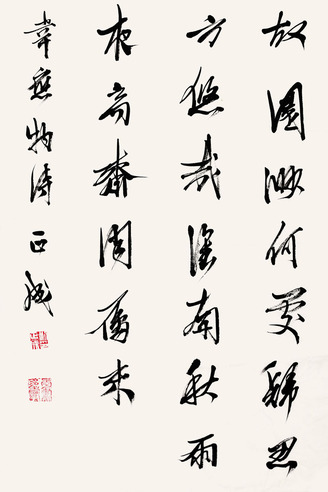 故園眇何處歸思
方悠哉淮南秋雨
夜高齋聞鴈來
韋應物詩 正成